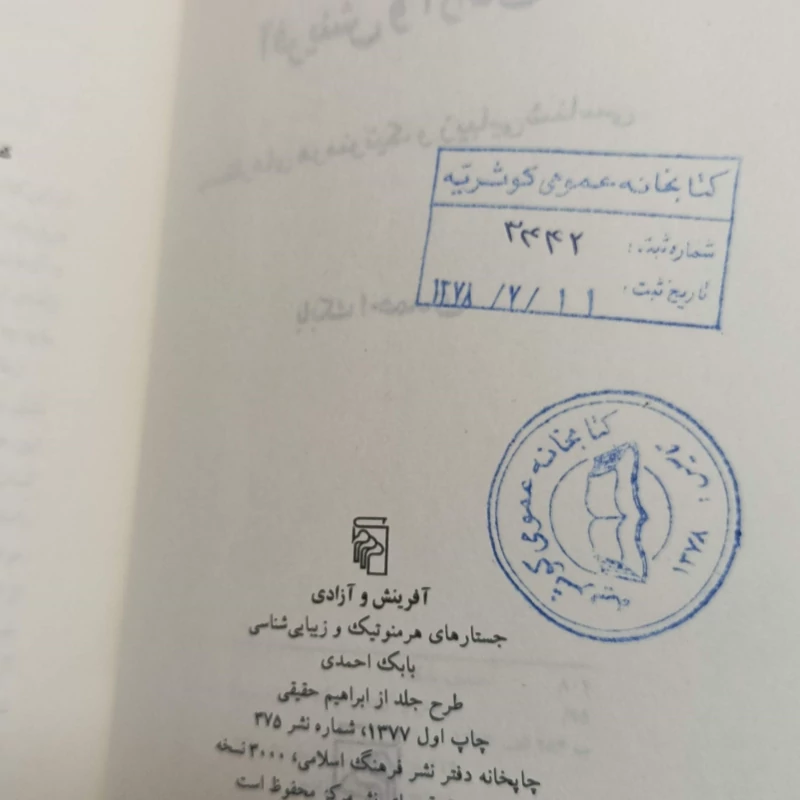 کتابخانه عمومی کوشریّه
شماره ثبت: ۳۴۴۲
تاریخ ثبت: ۱۳۷۸/۷/۱۱
کتابخانه عمومی
۱۳۷۸
آفرینش و آزادی
جستارهای هرمنوتیک و زیبایی‌شناسی
بابک احمدی
طرح جلد از ابراهیم حقیقی
چاپ اول ۱۳۷۷، شماره نشر ۳۷۵
چاپخانه دفتر نشر فرهنگ اسلامی، ۳۰۰۰ نسخه
نشر مرکز محفوظ است